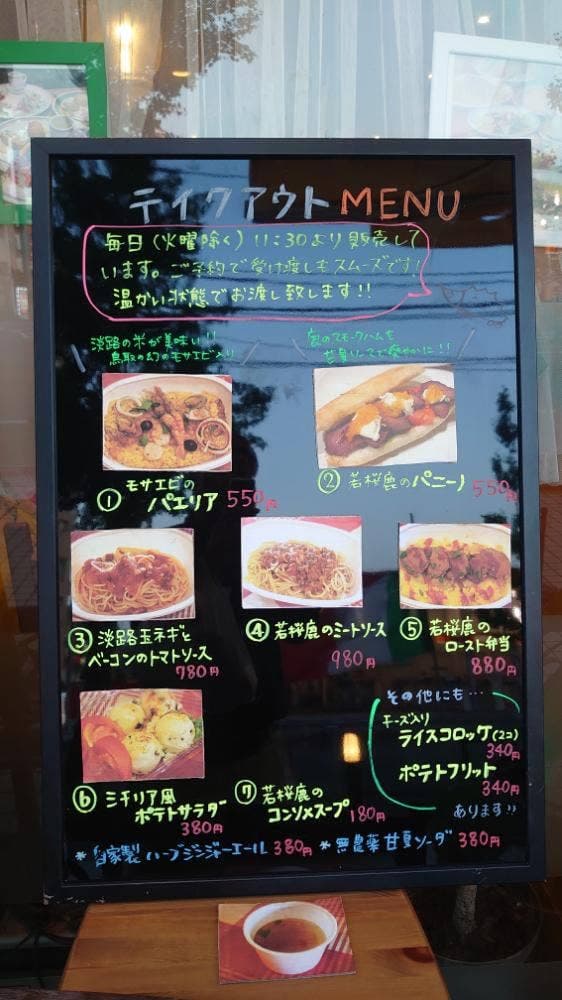 テイクアウト MENU
毎日(火曜除く)11:30より販売して
います。ご予約で受け渡しもスムーズです!
温かい状態でお渡し致します!!
淡路の米が美味い!!
鳥取の幻のモサエビ入り
鹿のスモークハムを
甘夏ソースで爽やかに!!
① モサエビの
パエリア 550円
② 若桜鹿のパニーノ
550円
③ 淡路玉ネギと
ベーコンのトマトソース
780円
④ 若桜鹿のミートソース
980円
⑤ 若桜鹿の
ロースト弁当
880円
⑥ ミチリア風
ポテトサラダ
380円
⑦ 若桜鹿の
コンソメスープ 180円
その他にも…
チーズ入り
ライスコロッケ(2コ)
340円
ポテトフリット
340円
あります!!
* 自家製ハーブジンジャーエール 380円 * 無農薬甘夏ソーダ 380円